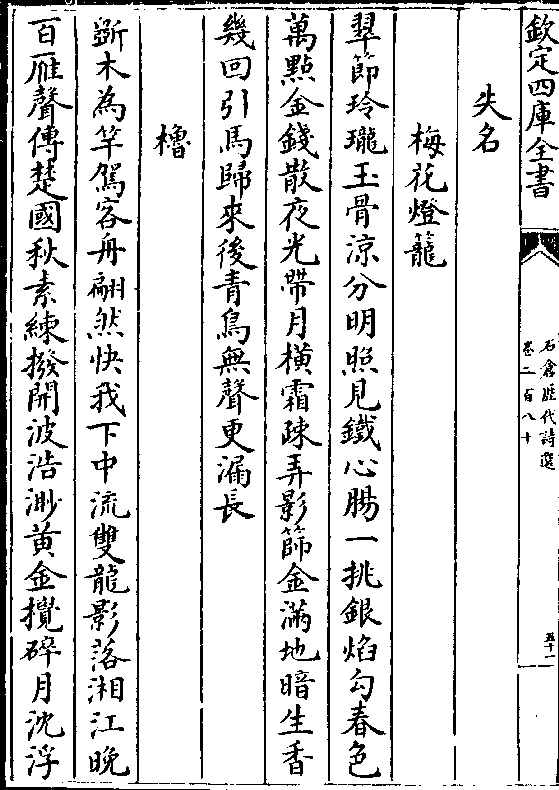 欽定四庫全書
石倉歴代詩選
卷二百八十
五十一
失名
梅花燈籠
翠節玲瓏玉骨凉分明照見鐵心腸一挑銀焰勾春色
萬點金錢散夜光帶月橫霜疎弄影篩金滿地暗生香
幾回引馬歸來後青鳥無聲更漏長
櫓
斵木為竿駕客舟翩然快我下中流雙龍影落湘江晚
百雁聲傳楚國秋素練撥開波浩渺黄金攪碎月沈浮